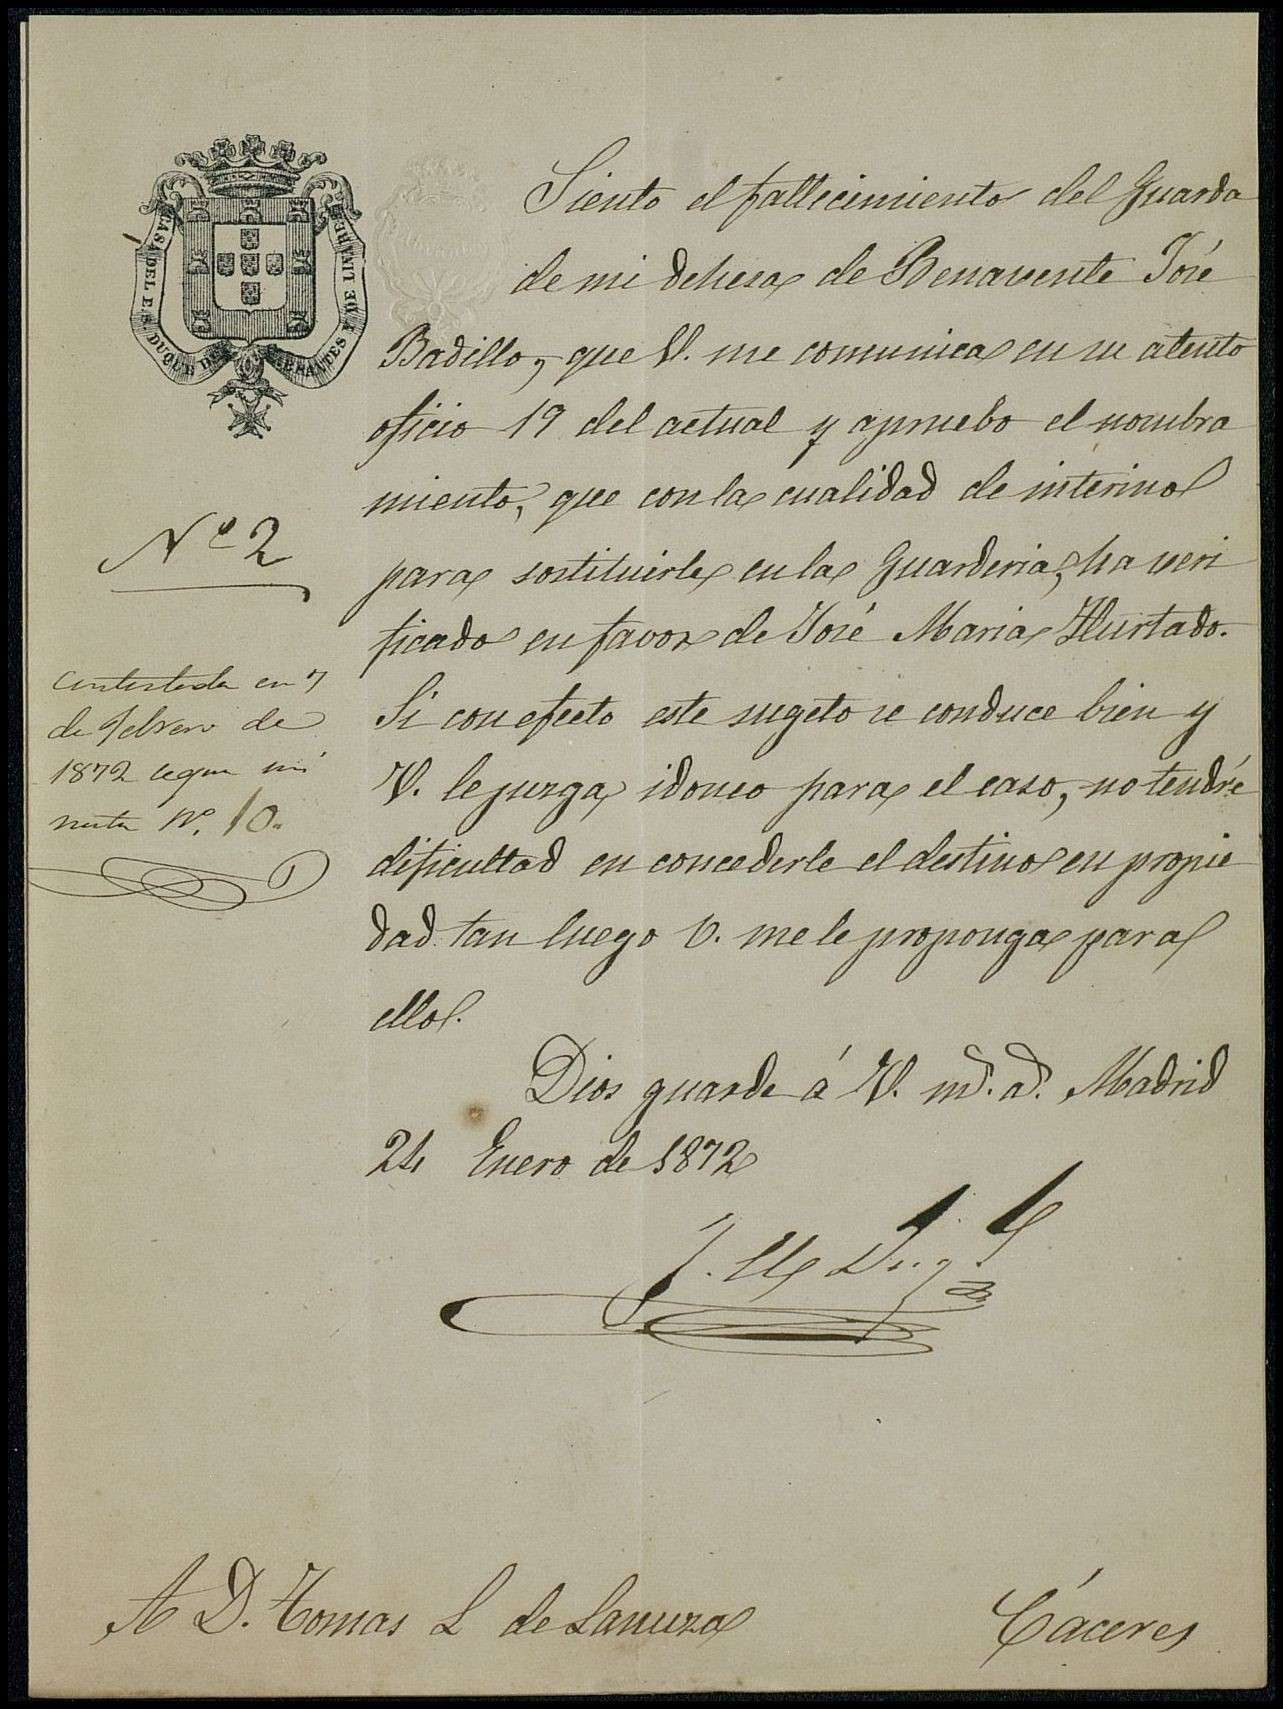 CASA DEL E. S. DUQUE DE ABRANTES Y DE LINARES
Siento el fallecimiento del Guarda
de mi dehesa de Benavente José
Badillo, que V. me comunica en su atento
oficio 19 del actual y apruebo el nombra
miento, que con la cualidad de interino
para sostituirle en la Guarderia, ha veri
ficado en favor de José Maria Hurtado.
Si con efecto este sugeto se conduce bien y
V. le juzga idoneo para el caso, no tendré
dificultad en concederle el destino en propie
dad tan luego V. me le proponga para
ello.
Dios guarde á V. m.s a.s Madrid
24 Enero de 1872
Nº 2
Contestada en 7
de febrero de
1872 segun mi
nuta Nº. 10.
A D. Tomas L de Lanuza
Cáceres